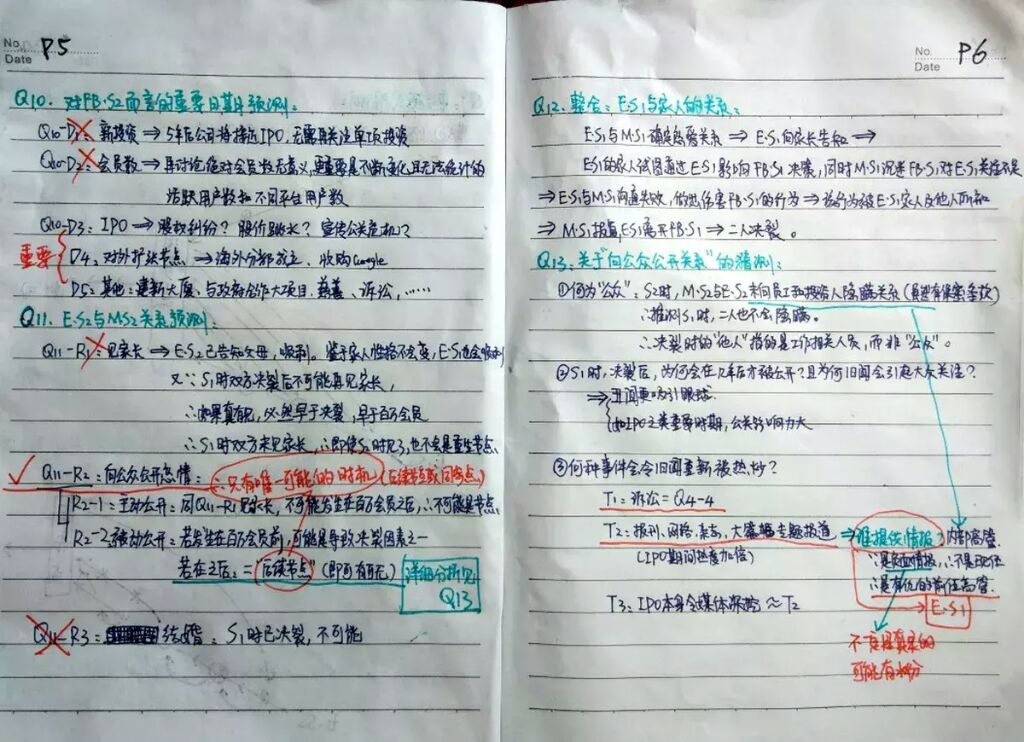 No. P5
Date
Q10. 对FB·S2而言的重要日期预测:
Q10-D1: 新投资 ⇒ 5年后公司将接近IPO, 无需再关注单项投资
Q10-D2: 会员数 ⇒ 再讨论绝对会员数无意义, 更重要是不断变化且无法统计的
活跃用户数和不同平台用户数
Q10-D3: IPO → 股权纠纷? 股价跳水? 宣传公关危机?
重要
D4: 对外扩张节点 → 海外分部成立、收购Google
D5: 其他: 建新大厦、与政府合作大项目、慈善、诉讼, ……
Q11. E·S2与M·S2关系预测:
Q11-R1: 见家长 → E·S2已告知父母, 顺利。鉴于家人性格不会变, E·S1也会顺利
又∵S1时双方决裂后不可能再见家长,
∴如果真见, 必然早于决裂, 早于百万会员
∴S1时双方未见家长, ∴即使S2时见了, 也不会是重生节点
✓ Q11-R2: 向公众公开恋情: ∴只有唯一可能的时机(后续节点或同节点)
R2-1: 主动公开: 同Q11-R1见家长, 不可能发生在百万会员之后, ∴不可能是节点
R2-2: 被动公开: 若发生在百万会员前, 可能是导致决裂因素之一
若在之后: = "后续节点" (即可有可无)
详细分析见
Q13
Q11-R3: 结婚: S1时已决裂, 不可能
No. P6
Date
Q12. 整合: E·S1与家人的关系:
E·S1与M·S1确定恋爱关系 → E·S1向家长告知 →
E·S1的家人试图通过E·S1影响FB·S1决策, 同时M·S1沉迷FB·S1, 对E·S1关注不足
⇒ E·S1与M·S1沟通失败, 做出伤害FB·S1的行为 ⇒ 该行为被E·S1家人及他人所知
⇒ M·S1报复, E·S1离开FB·S1 → 二人决裂。
Q13: 关于"向公众公开关系"的猜测:
①何为"公众": S2时, M·S2与E·S2未向员工和投资人隐瞒关系(虽然有保密条款)
∴推测S1时, 二人也不会隐瞒。
∴决裂时的"他人"指的是工作相关人员, 而非"公众"。
②S1时, 决裂后, 为何会在几年后才被公开? 且为何旧闻会引起大众关注?
⇒ 丑闻更吸引眼球
如IPO之类重要时期, 公关影响力大
③何种事件会令旧闻重新被热炒?
T1: 诉讼 = Q4-4
T2: 报刊、网络、杂志, 大篇幅专题报道 ⇒ 谁提供情报? 内部高管
(IPO期间热度加倍)
∵是负面情报, ∴不是现任
∴是有仇的前任高管
E·S1
T3: IPO本身令媒体深挖 ≈ T2
不一定是真的
可能有水分